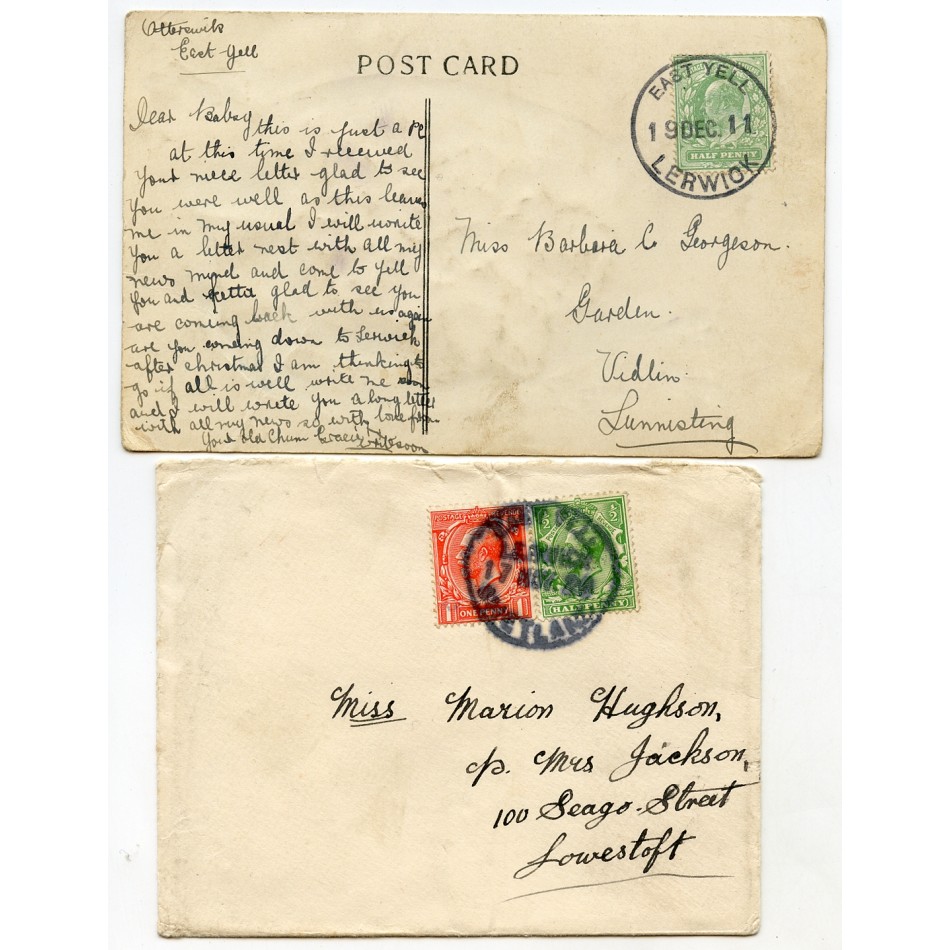 Otterswik
East Yell
POST CARD
EAST YELL
19 DEC. 11
LERWICK
HALF PENNY
Dear Babsy
this is just a PC
at this time I received
your niece letter glad to see
you were well as this leaves
me in my usual I will wriite
you a letter nest with all my
news mind and come to yell
you and glad to see you
are coming back with us again
are you coming down to Lerwick
after christmas I am thinking to
go if all is well write me soon
and I will write you a long letter
with all my news so with love from
your old Chum
write soon
Miss Barbara C Georgeson.
Garden.
Vidlin.
Lunnisting
POSTAGE REVENUE
1 ONE PENNY 1
1/2 1/2
HALFPENNY
17
SHETLAND
Miss Marion Hughson,
c/o. Mrs Jackson,
100 Seago Street
Lowestoft